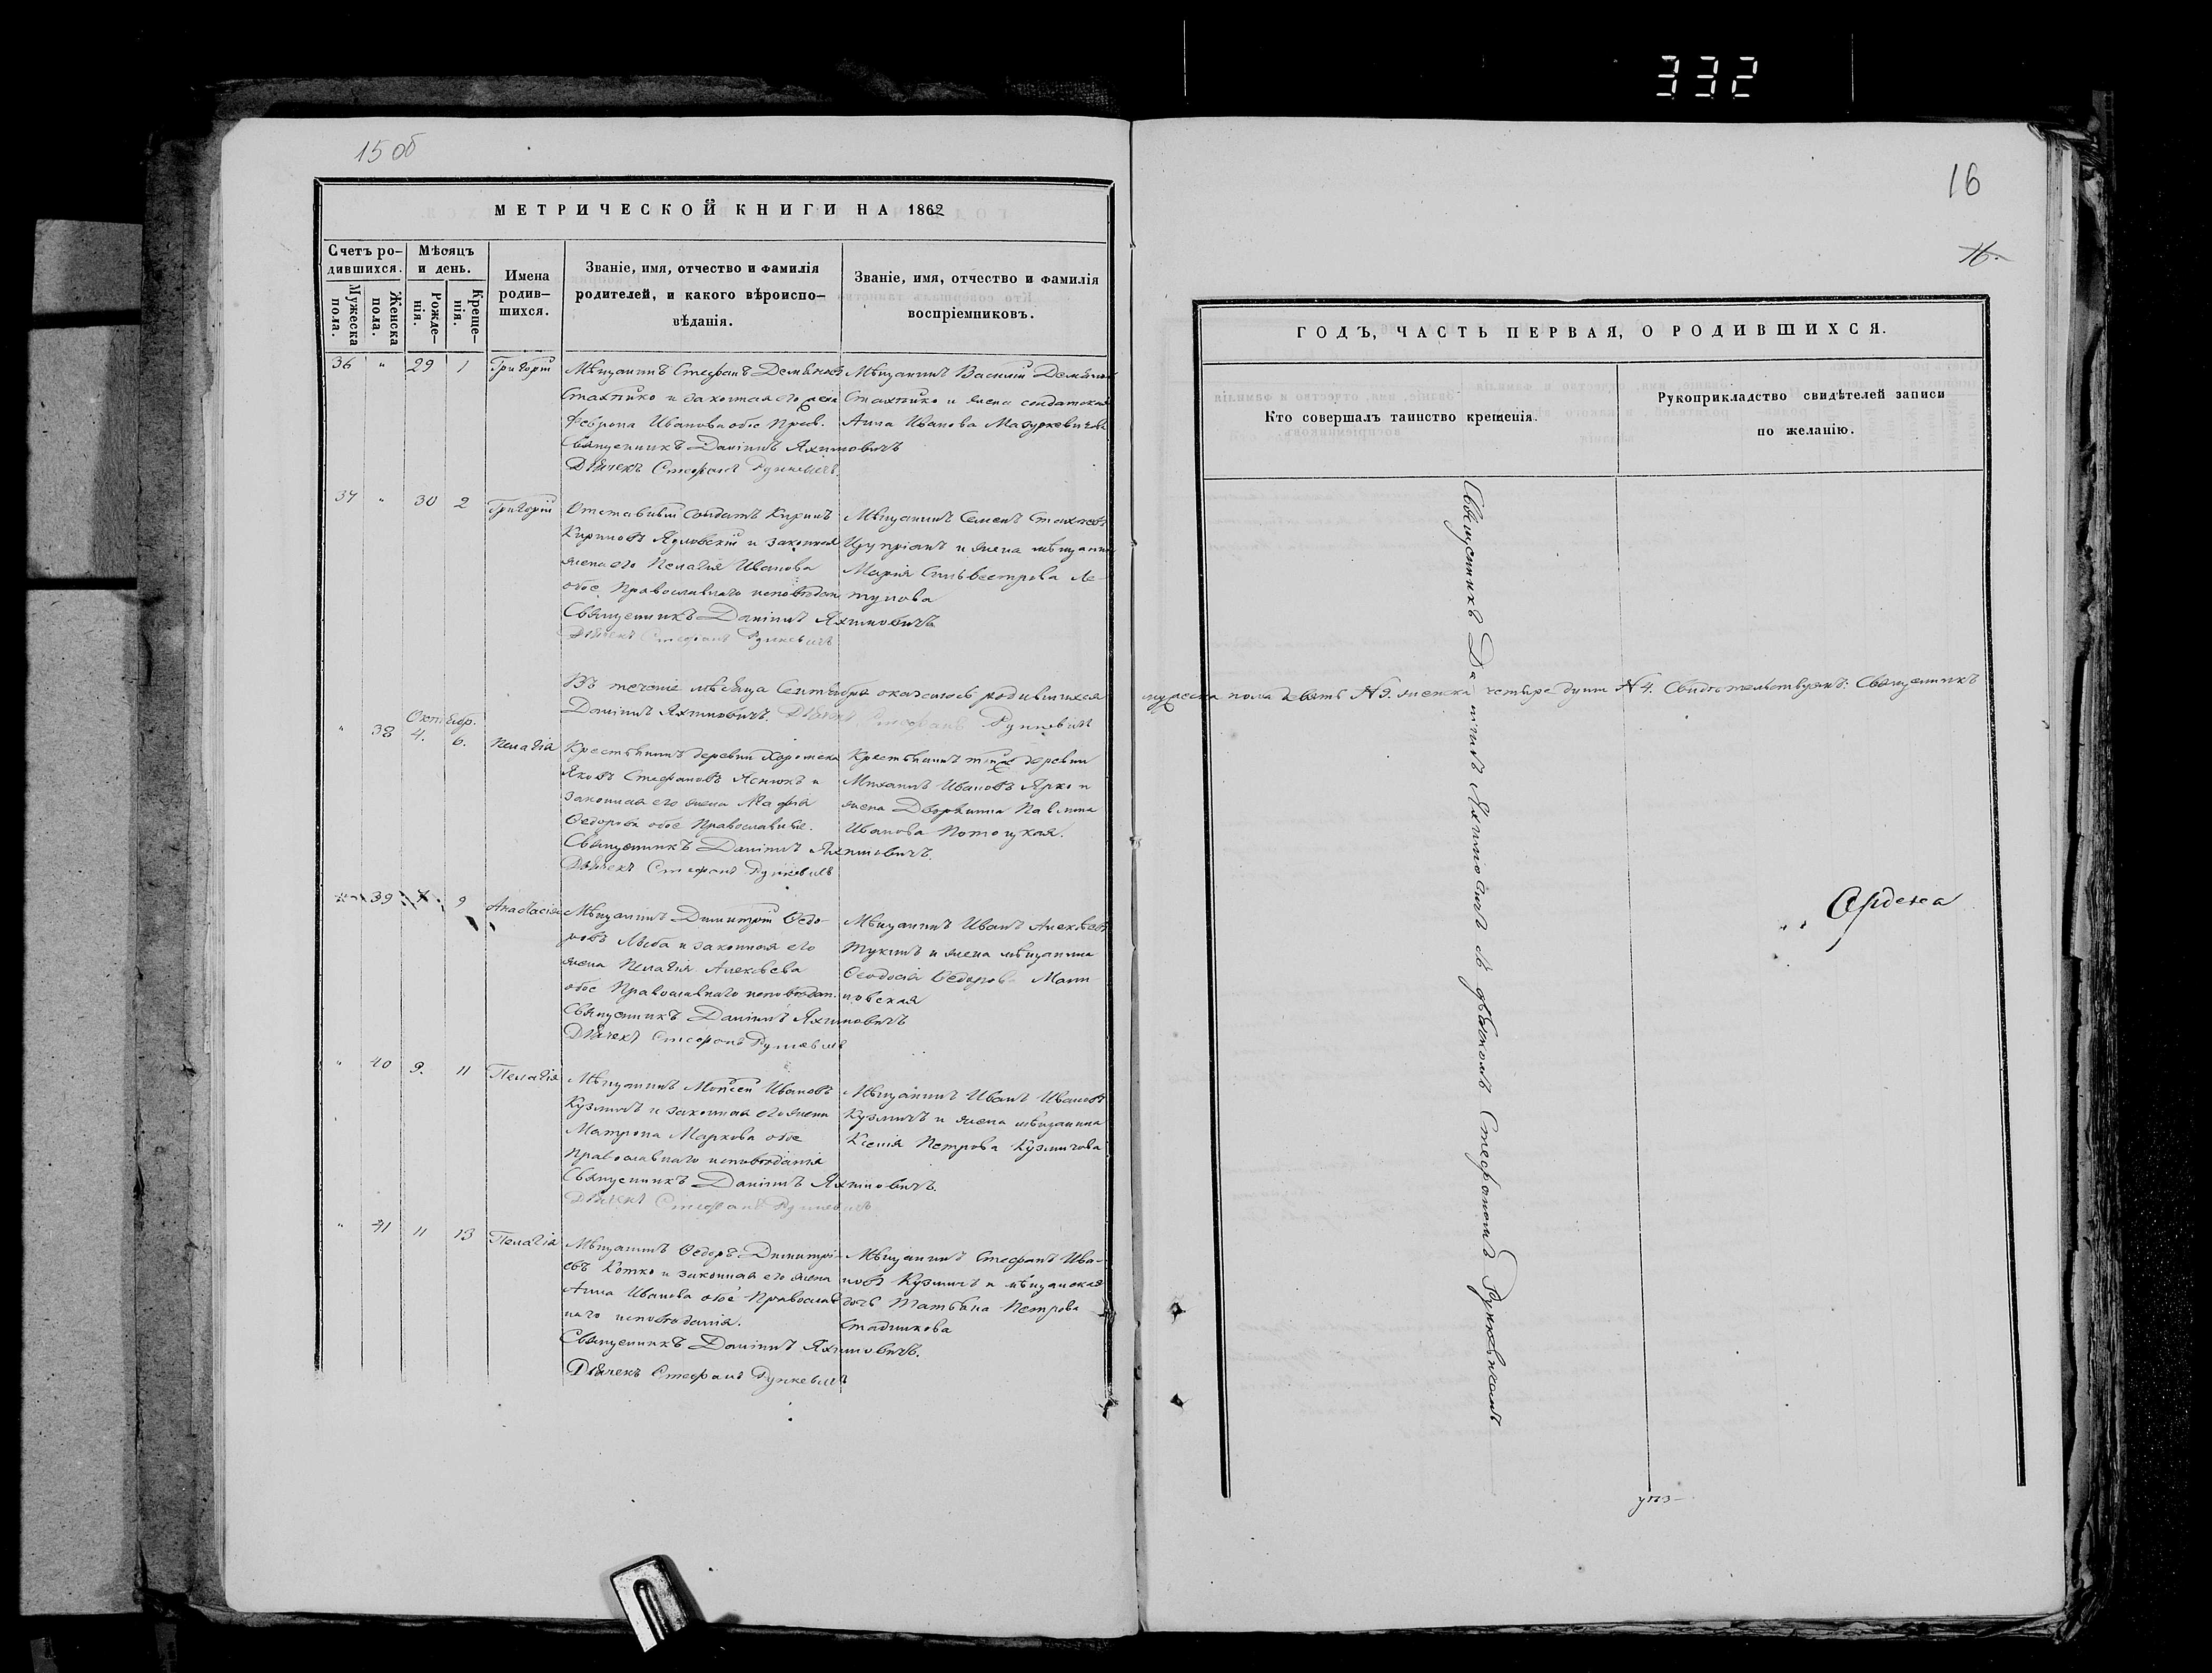 332
15 об
МЕТРИЧЕСКОЙ КНИГИ НА 1862
Счетъ ро-
дившихся.
Мужеска
пола.
Женска
пола.
Мѣсяцъ
и день.
Рожде-
нія.
Креще-
нія.
Имена
родив-
шихся.
Званіе, имя, отчество и фамилія
родителей, и какого вѣроиспо-
вѣданія.
Званіе, имя, отчество и фамилія
воспріемниковъ.
36 " 29 1 Григорій
Мѣщанинъ Стефанъ Демьяновъ
и законная его жена
Феврона Иванова обое Прав.
Священникъ Даніилъ Яхимовичъ
Дьячекъ Стефанъ Рункевичъ
Мѣщанинъ Василій
и жена солдатская
Анна Иванова Мазуркевичева
37 " 30 2 Григорій
Отставный Солдатъ Кирилъ
Кириловъ и законная
жена его Пелагія Иванова
обое Православнаго исповѣдан.
Священникъ Даніилъ Яхимовичъ
Дьячекъ Стефанъ Рункевичъ
Мѣщанинъ Семенъ
и жена мѣщанина
Марія Сильвестрова Ле-
тунова
Въ теченіе мѣсяца Сентября оказалось родившихся
мужеска пола девять №9. женска четыре души №4. Свидѣтельствуемъ: Священникъ
Даніилъ Яхимовичъ. Дьячекъ Стефанъ Рункевичъ
Октябр.
" 38 4. 6. Пелагія
Крестьянинъ деревни
Яковъ Стефановъ Яснюкъ и
законная его жена
Федорова обое Православные.
Священникъ Даніилъ Яхимовичъ.
Дьячекъ Стефанъ Рункевичъ
Крестьянинъ деревни
Михаилъ Ивановъ Ярко и
жена Дворянина Павлина
Иванова Потоцкая.
39 9 Анастасія
Мѣщанинъ Димитрій Ѳедо-
ровъ и законная его
жена Пелагія Алексѣева
обое Православнаго исповѣдан.
Священникъ Даніилъ Яхимовичъ
Дьячекъ Стефанъ Рункевичъ
Мѣщанинъ Иванъ Алексѣевъ
и жена мѣщанина
Ѳеодосія Ѳедорова Мали-
новская
" 40 9. 11 Пелагія
Мѣщанинъ Моисей Ивановъ
Кузмичъ и законная его жена
Матрона Маркова обое
Православнаго исповѣданія
Священникъ Даніилъ Яхимовичъ.
Дьячекъ Стефанъ Рункевичъ
Мѣщанинъ Иванъ Ивановъ
Кузмичъ и жена мѣщанина
Ксенія Петрова Кузмичова
" 41 11 13 Пелагія
Мѣщанинъ Ѳедоръ Димитрі-
евъ Котко и законная его жена
Анна Иванова обое Православ-
наго исповѣданія.
Священникъ Даніилъ Яхимовичъ.
Дьячекъ Стефанъ Рункевичъ
Мѣщанинъ Стефанъ Ива-
новъ Кузмичъ и мѣщанская
дочь Татьяна Петрова
Стадникова
16
16.
ГОДЪ, ЧАСТЬ ПЕРВАЯ, О РОДИВШИХСЯ.
Кто совершалъ таинство крещенія.
Рукоприкладство свидѣтелей записи
по желанію.
Священникъ Даніилъ Яхимовичъ съ дьячкомъ Стефаномъ Рункевичомъ